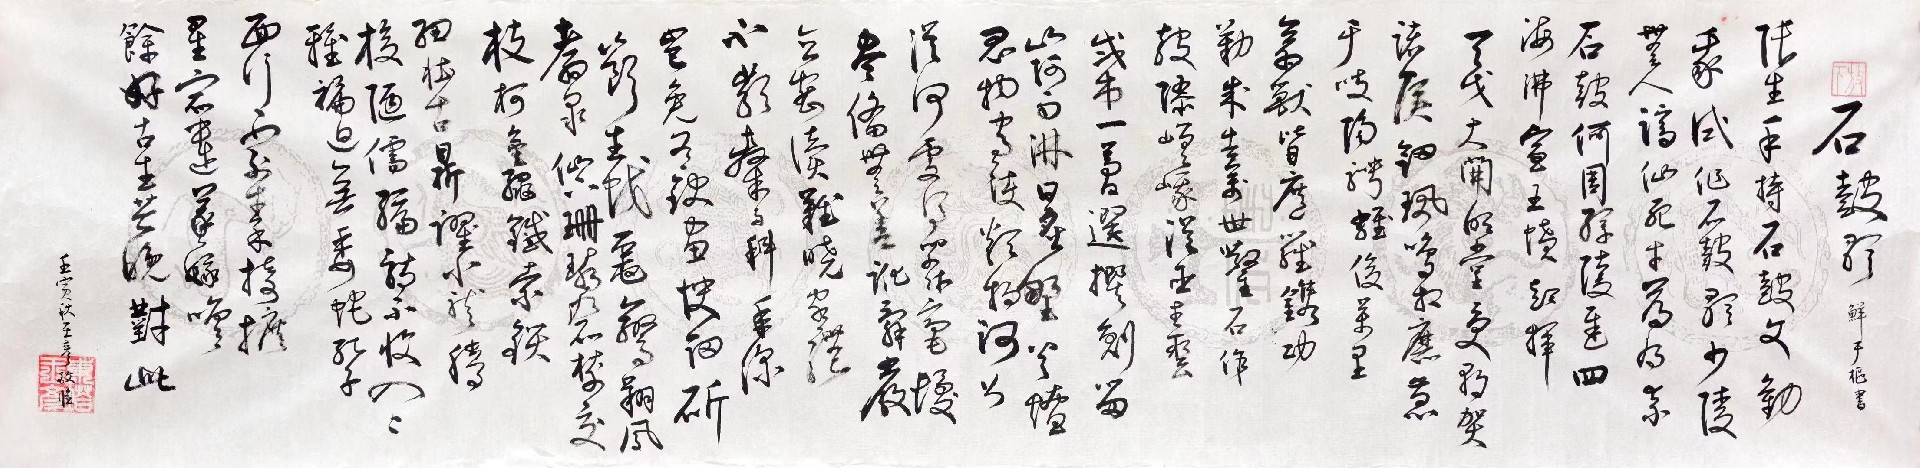 石鼓歌 鮮于樞書
張生手持石鼓文勸
我試作石鼓歌少陵
無人謫仙死才薄將奈
石鼓何周綱陵遲四
海沸宣王憤起揮
天戈大開明堂受朝賀
諸侯劍珮鳴相磨蒐
于岐陽騁雄俊萬里
禽獸皆遮羅鐫功
勒成告萬世鑿石作
鼓隳嵯峨從臣才藝
咸第一簡選撰刻留
山阿雨淋日炙野火燎
鬼物守護煩撝訶公
從何處得紙本毫髮
盡備無差訛辭嚴
義密讀難曉字體
不類隸與科年深
豈免有缺畫快劍斫
斷生蛟鼉鸞翔鳳
翥眾仙下珊瑚碧樹交
枝柯金繩鐵索鎖
紐壯古鼎躍水龍騰
梭陋儒編詩不收入二
雅褊迫無委蛇孔子
西行不到秦掎摭
星宿遺羲娥嗟
餘好古生苦晚對此
壬寅秋 敬臨